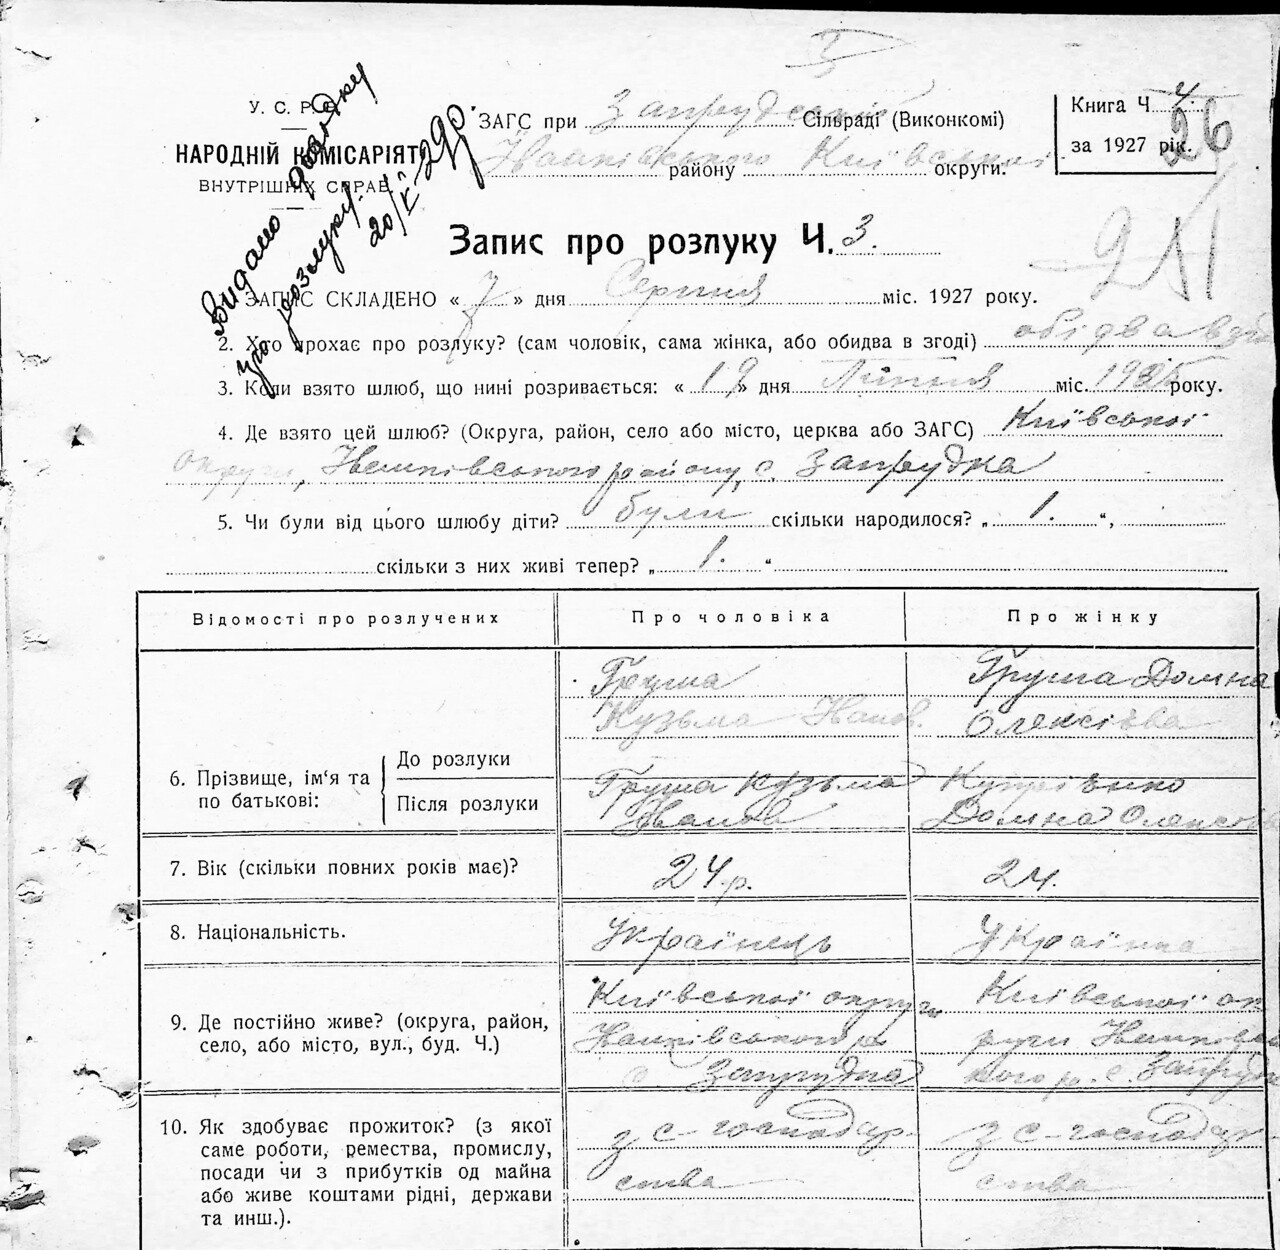 У. С. Р. Р.
НАРОДНІЙ КОМІСАРІЯТ
ВНУТРІШНІХ СПРАВ.
Видано довідку
про розлуку.
20/V-29р.
ЗАГС при Запрудській Сільраді (Виконкомі)
району Київської округи.
Книга Ч. 4.
за 1927 рік.
26
Запис про розлуку Ч. 3.
ЗАПИС СКЛАДЕНО « 7 » дня Серпня міс. 1927 року.
2. Хто прохає про розлуку? (сам чоловік, сама жінка, або обидва в згоді) обідва
3. Коли взято шлюб, що нині розривається: « 19 » дня Липня міс. року.
4. Де взято цей шлюб? (Округа, район, село або місто, церква або ЗАГС) Київської
округи, району, с. Запрудка
5. Чи були від цього шлюбу діти? були скільки народилося? „ 1. “,
скільки з них живі тепер? „ 1. “
Відомості про розлучених Про чоловіка Про жінку
6. Прізвище, ім‘я та по батькові:
До розлуки
Груша
Кузьма Іванов.
Груша Домна
Олексієва
Після розлуки
Груша Кузьма
Іванов
Купрієнко
Домна Олексієва
7. Вік (скільки повних років має)? 24 р. 24.
8. Національність. Українець Українка
9. Де постійно живе? (округа, район,
село, або місто, вул., буд. Ч.)
Київської округи
с. Запрудка
Київської ок
руги
кого р. с. Запрудка
10. Як здобуває прожиток? (з якої
саме роботи, ремества, промислу,
посади чи з прибутків од майна
або живе коштами рідні, держави
та инш.).
з с-господар-
ства
з с-господар-
ства